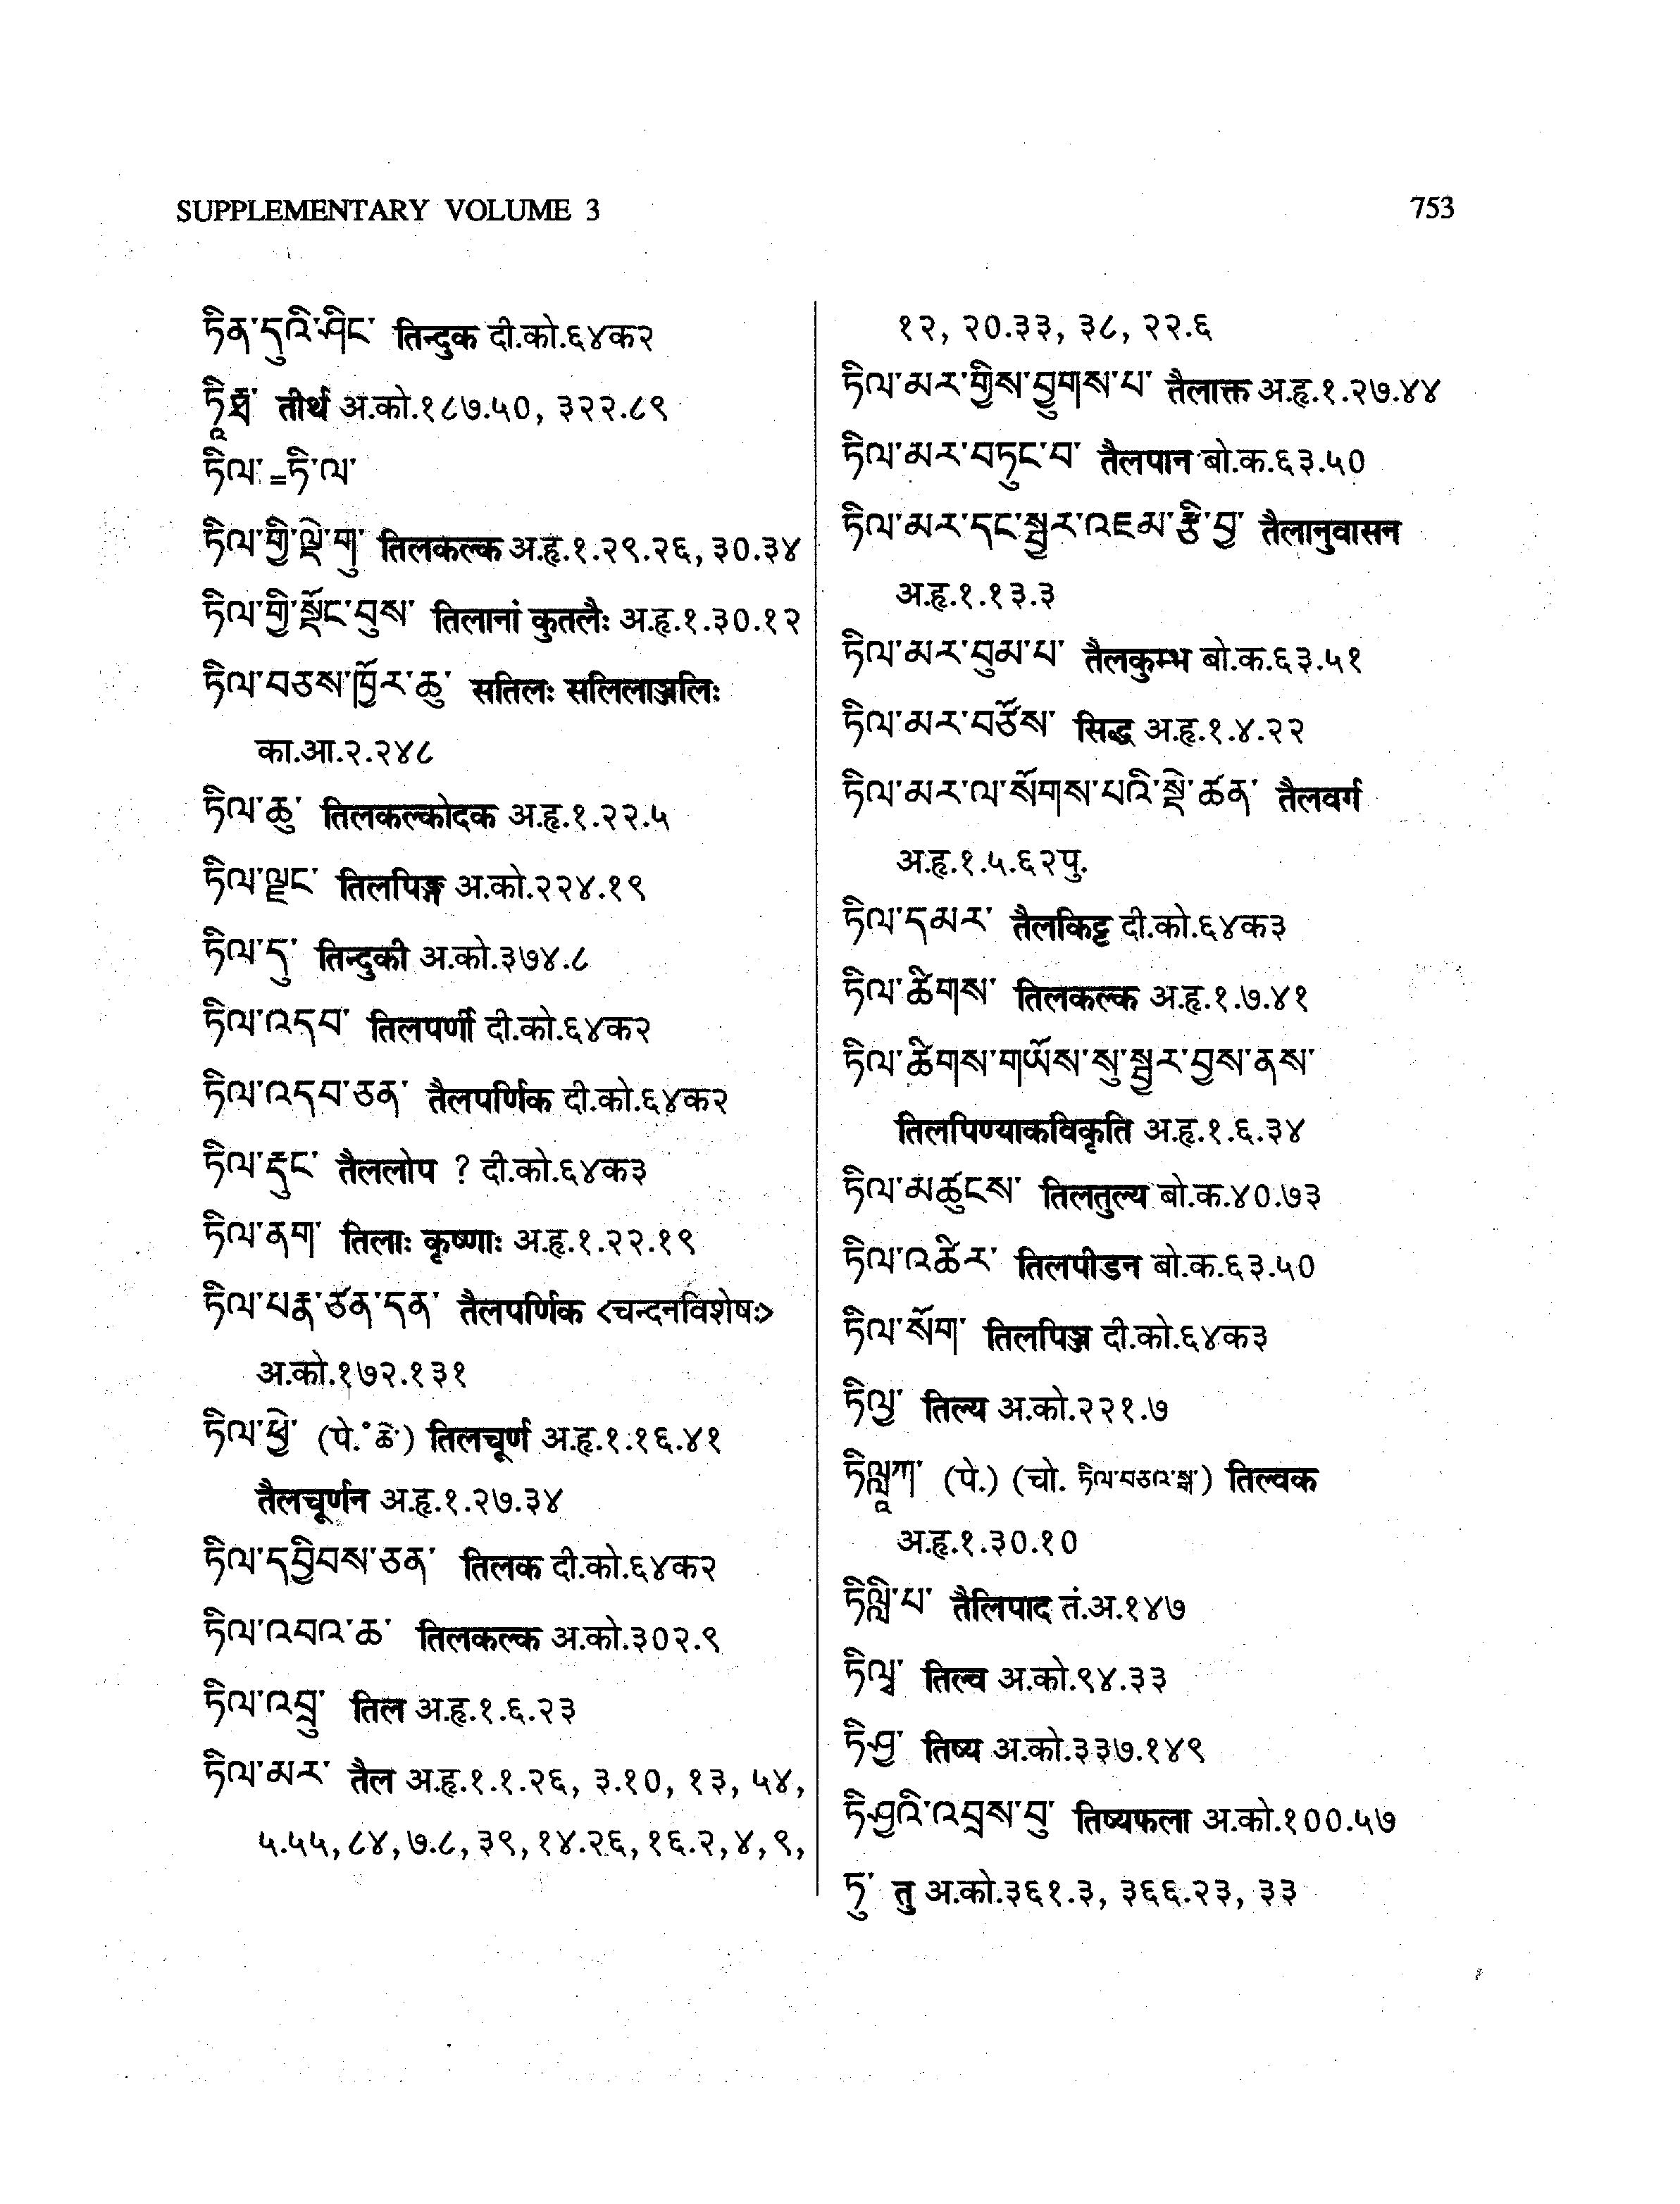 SUPPLEMENTARY VOLUME 3
753
ཏིན་དུའི་ཤིང་ तिन्दुक दी.को.६४क२
तीर्थ अ.को.१८७.५०, ३२२.८९
ཏིལ་ =ཏི་ལ་
ཏིལ་གྱི་ལྡེ་གུ་ तिलकल्क अ.हृ.१.२९.२६, ३०.३४
ཏིལ་གྱི་སྡོང་བུས་ तिलानां कुतलैः अ.हृ.१.३०.१२
ཏིལ་བཅས་ཁྱོར་ཆུ་ सतिलः सलिलाञ्जलिः
का.आ.२.२४८
ཏིལ་ཆུ་ तिलकल्कोदक अ.हृ.१.२२.५
ཏིལ་ལྗང་ तिलपिञ्ज अ.को.२२४.१९
ཏིལ་དུ་ तिन्दुकी अ.को.३७४.८
ཏིལ་འདབ་ तिलपर्णी दी.को.६४क२
ཏིལ་འདབ་ཅན་ तैलपर्णिक दी.को.६४क२
ཏིལ་རྡུང་ तैललोप ? दी.को.६४क३
ཏིལ་ནག་ तिलाः कृष्णाः अ.हृ.१.२२.१९
ཏིལ་པརྞ་ཙན་དན་ तैलपर्णिक <चन्दनविशेषः>
अ.को.१७२.१३१
ཏིལ་ཕྱེ་ (पे.° ཆེ་) तिलचूर्ण अ.हृ.१.१६.४१
तैलचूर्णन अ.हृ.१.२७.३४
ཏིལ་དབྱིབས་ཅན་ तिलक दी.को.६४क२
ཏིལ་འབའ་ཆ་ तिलकल्क अ.को.३०२.९
ཏིལ་འབྲུ་ तिल अ.हृ.१.६.२३
ཏིལ་མར་ तैल अ.हृ.१.१.२६, ३.१०, १३, ५४,
५.५५, ८४, ७.८, ३९, १४.२६, १६.२, ४, ९,
१२, २०.३३, ३८, २२.६
ཏིལ་མར་གྱིས་བྱུགས་པ་ तैलाक्त अ.हृ.१.२७.४४
ཏིལ་མར་བཏུང་བ་ तैलपान बो.क.६३.५०
ཏིལ་མར་དང་སྦྱར་འཇམ་རྩི་བྱ་ तैलानुवासन
अ.हृ.१.१३.३
ཏིལ་མར་བུམ་པ་ तैलकुम्भ बो.क.६३.५१
ཏིལ་མར་བཙོས་ सिद्ध अ.हृ.१.४.२२
ཏིལ་མར་ལ་སོགས་པའི་སྡེ་ཚན་ तैलवर्ग
अ.हृ.१.५.६२पु.
ཏིལ་དམར་ तैलकिट्ट दी.को.६४क३
ཏིལ་ཚིགས་ तिलकल्क अ.हृ.१.७.४१
ཏིལ་ཚིགས་གཡོས་སུ་སྦྱར་བྱས་ནས་
तिलपिण्याकविकृति अ.हृ.१.६.३४
ཏིལ་མཚུངས་ तिलतुल्य बो.क.४०.७३
ཏིལ་འཚིར་ तिलपीडन बो.क.६३.५०
ཏིལ་སོག་ तिलपिञ्ज दी.को.६४क३
ཏིལྱ་ तिल्य अ.को.२२१.७
(पे.) (चो. ) तिल्वक
अ.हृ.१.३०.१०
ཏིལླི་པ་ तैलिपाद तं.अ.१४७
ཏིལྦ་ तिल्व अ.को.९४.३३
ཏིཥྱ་ तिष्य अ.को.३३७.१४९
ཏིཥྱའི་འབྲས་བུ་ तिष्यफला अ.को.१००.५७
ཏུ་ तु अ.को.३६१.३, ३६६.२३, ३३